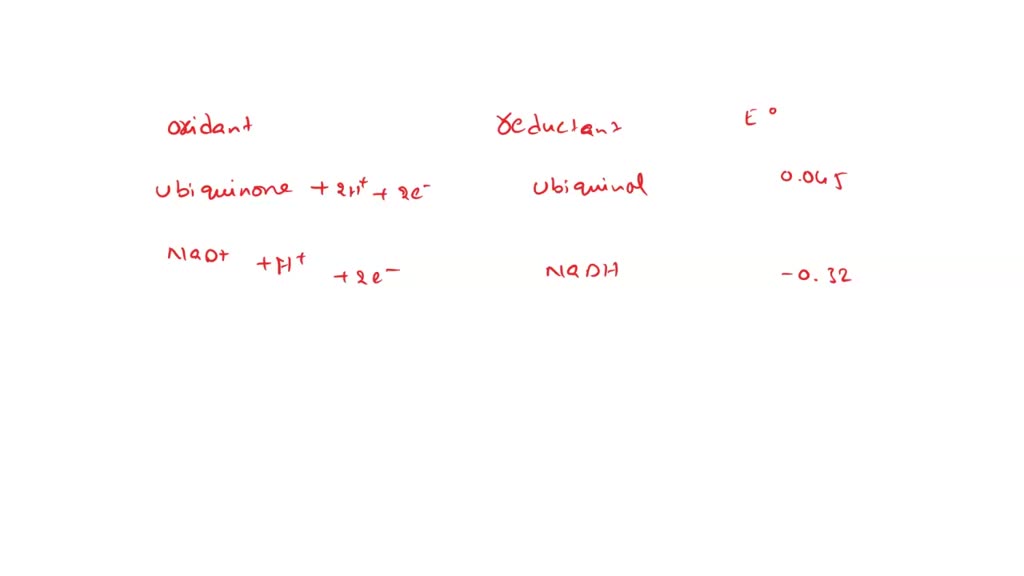 oxidant reductant E°
Ubiquinone + 2H⁺ + 2e⁻ Ubiquinol 0.045
NAD+ + H⁺ + 2e⁻ NADH -0.32